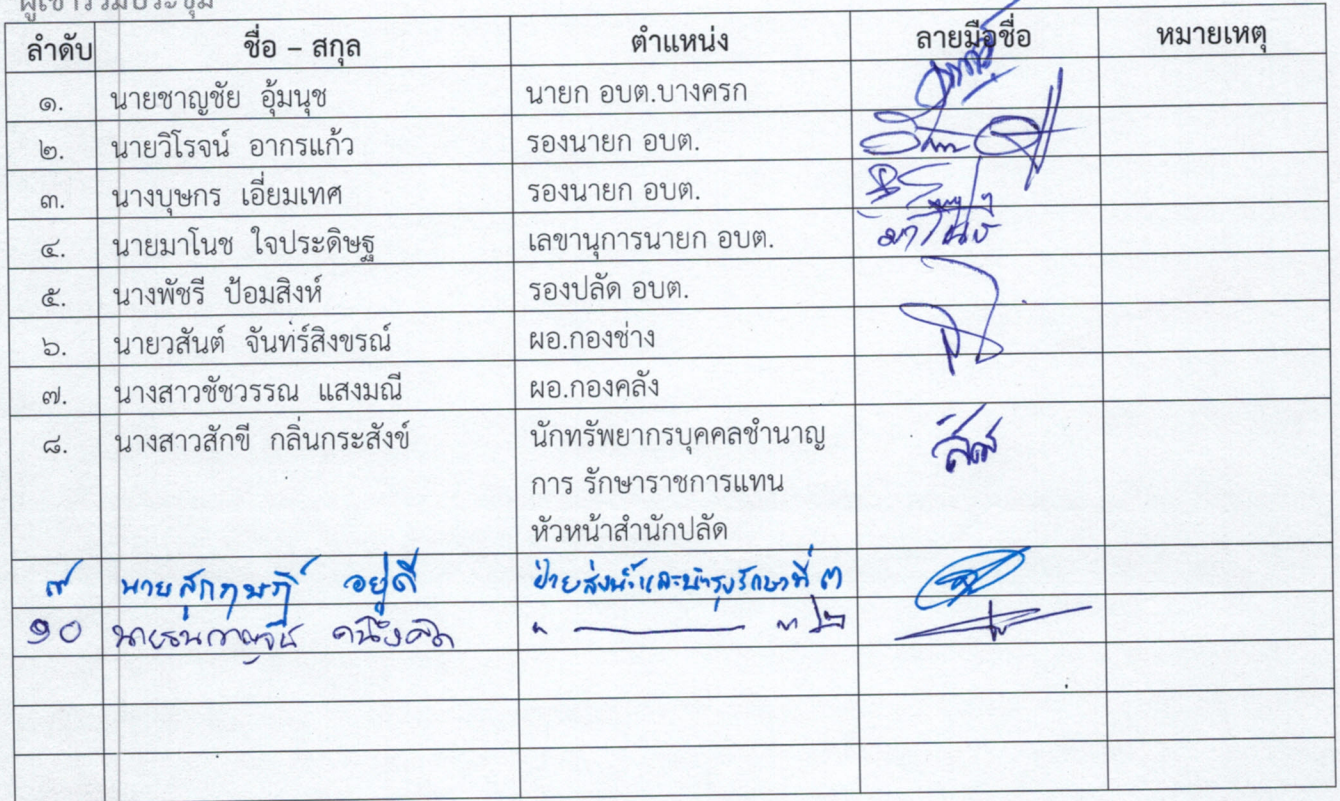 ผู้เข้าร่วมประชุม
ลำดับ ชื่อ – สกุล ตำแหน่ง ลายมือชื่อ หมายเหตุ
๑. นายชาญชัย อุ้มนุช นายก อบต.บางครก
๒. นายวิโรจน์ อากรแก้ว รองนายก อบต.
๓. นางบุษกร เอี่ยมเทศ รองนายก อบต.
๔. นายมาโนช ใจประดิษฐ เลขานุการนายก อบต. มาโนช
๕. นางพัชรี ป้อมสิงห์ รองปลัด อบต.
๖. นายวสันต์ จันทร์สิงขรณ์ ผอ.กองช่าง
๗. นางสาวชัชวรรณ แสงมณี ผอ.กองคลัง
๘. นางสาวสักขี กลิ่นกระสังข์ นักทรัพยากรบุคคลชำนาญ
การ รักษาราชการแทน
หัวหน้าสำนักปลัด
๙ นาย อยู่ดี ฝ่ายส่งน้ำและบำรุงรักษาที่ ๓
๑๐ " ๒